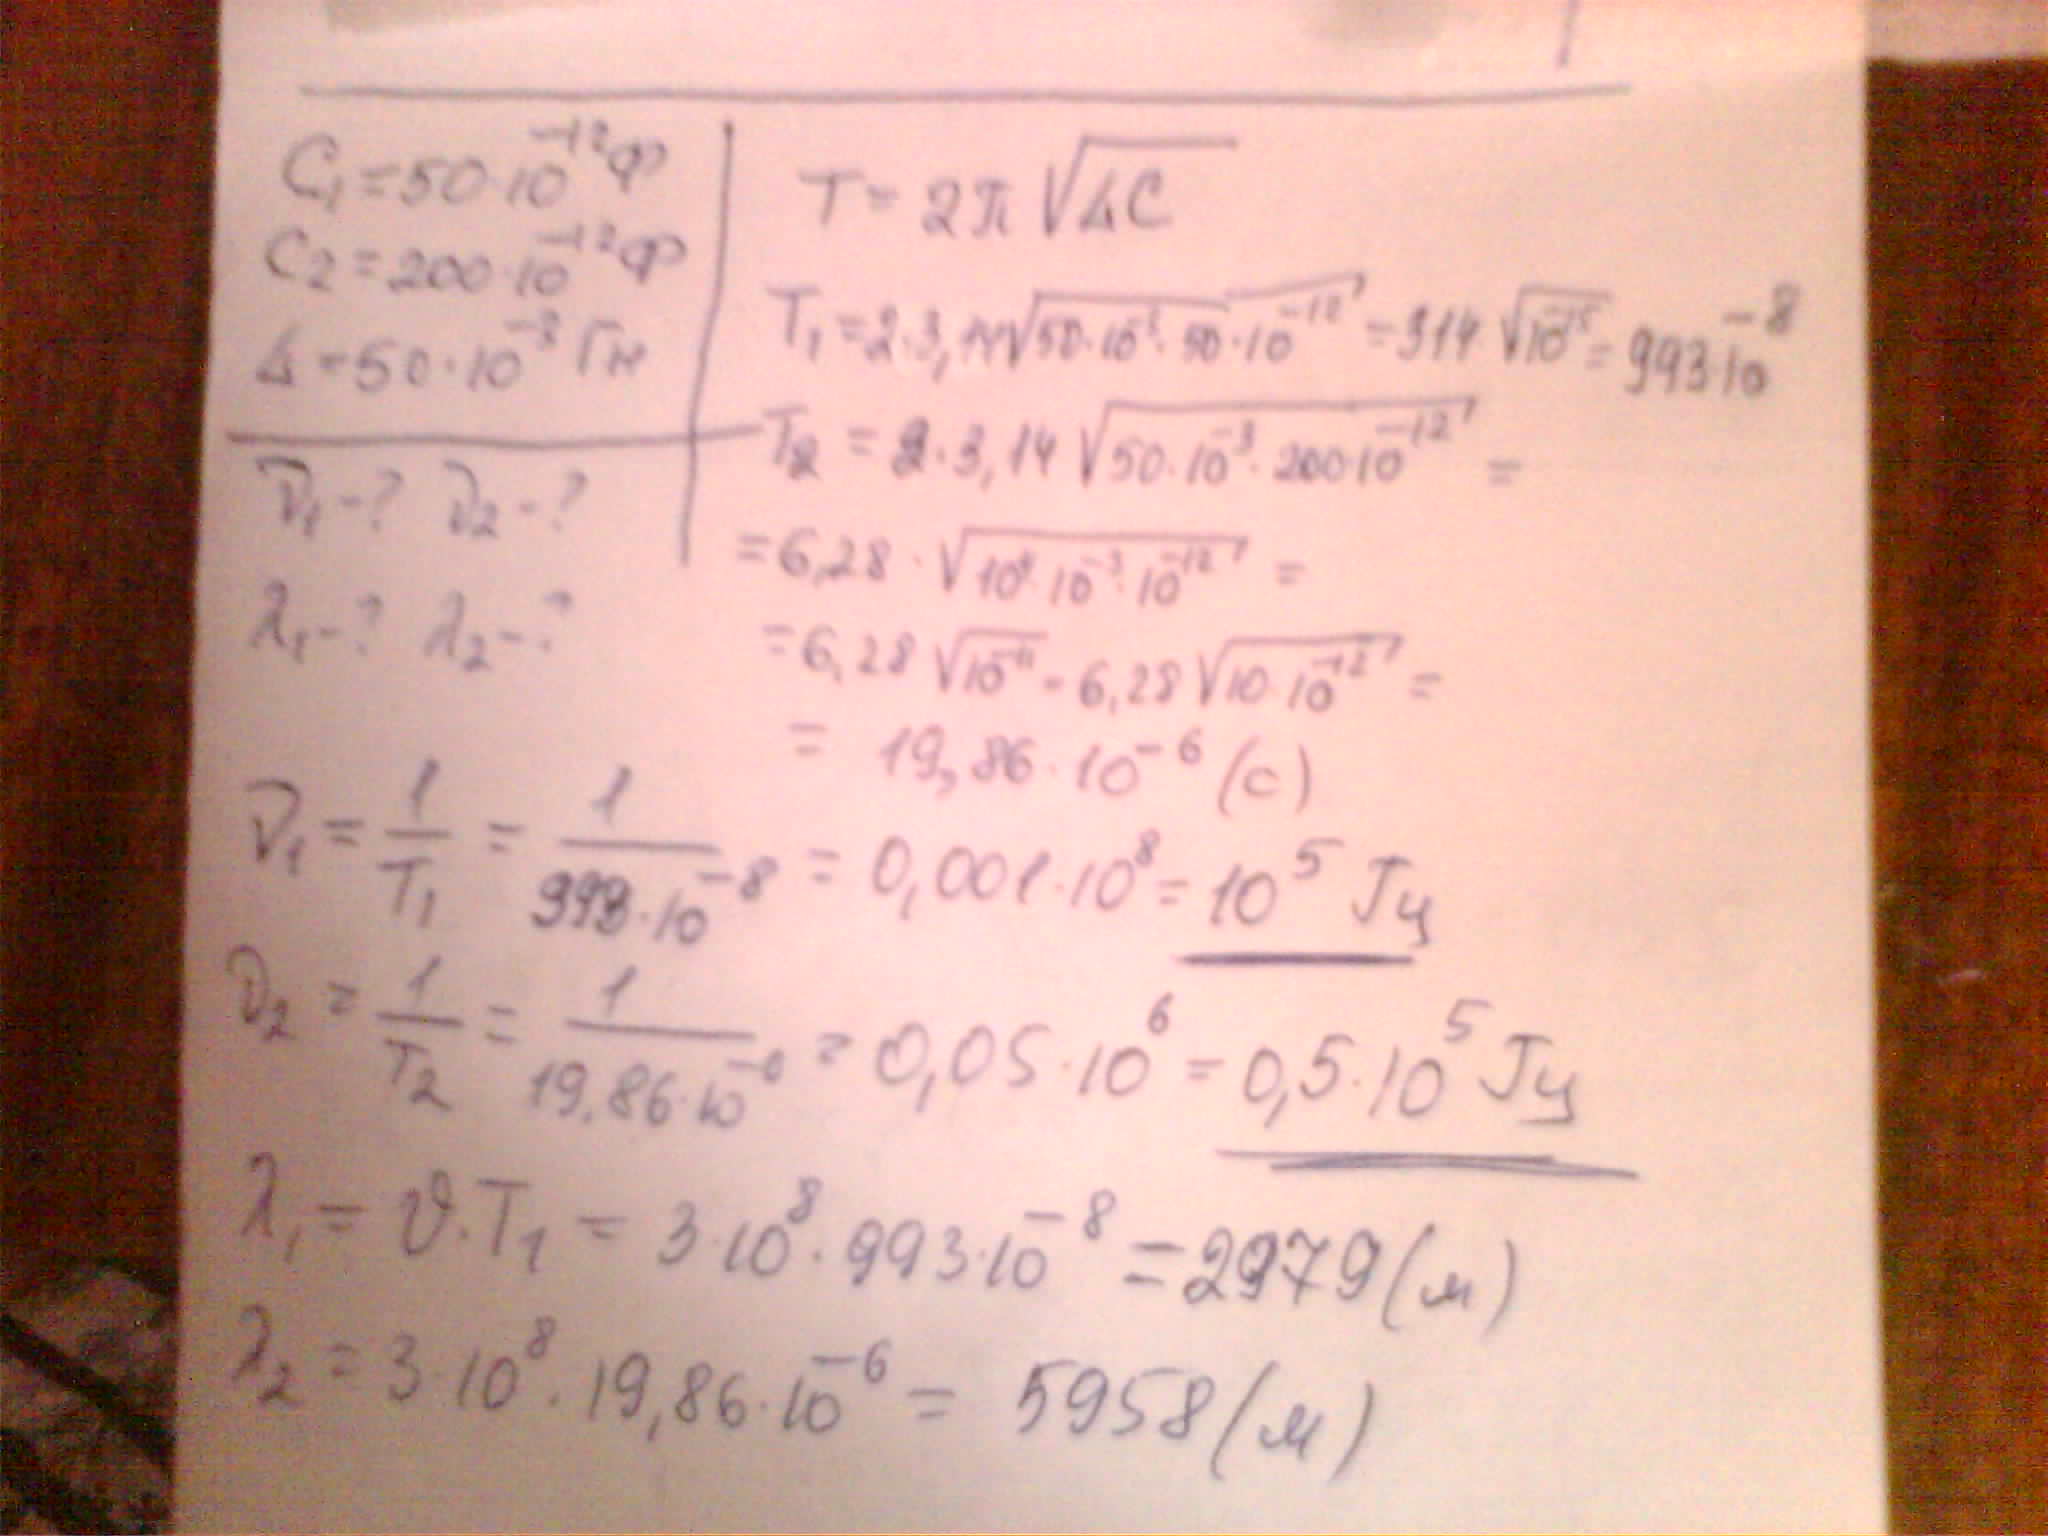 C₁=50·10⁻¹²Ф
C₂=200·10⁻¹²Ф
L=50·10⁻³Гн
ν₁-? ν₂-?
λ₁-? λ₂-?
T=2π√LC
T₁=2·3,14√50·10⁻³·50·10⁻¹²=314·√10⁻¹⁵=993·10⁻⁸
T₂=2·3,14√50·10⁻³·200·10⁻¹²=
=6,28·√10⁴·10⁻³·10⁻¹²=
=6,28√10⁻¹¹=6,28√10·10⁻¹²=
=19,86·10⁻⁶(с)
ν₁=1/T₁=1/993·10⁻⁸=0,001·10⁸=10⁵Гц
ν₂=1/T₂=1/19,86·10⁻⁶=0,05·10⁶=0,5·10⁵Гц
λ₁=υ·T₁=3·10⁸·993·10⁻⁸=2979(м)
λ₂=3·10⁸·19,86·10⁻⁶=5958(м)